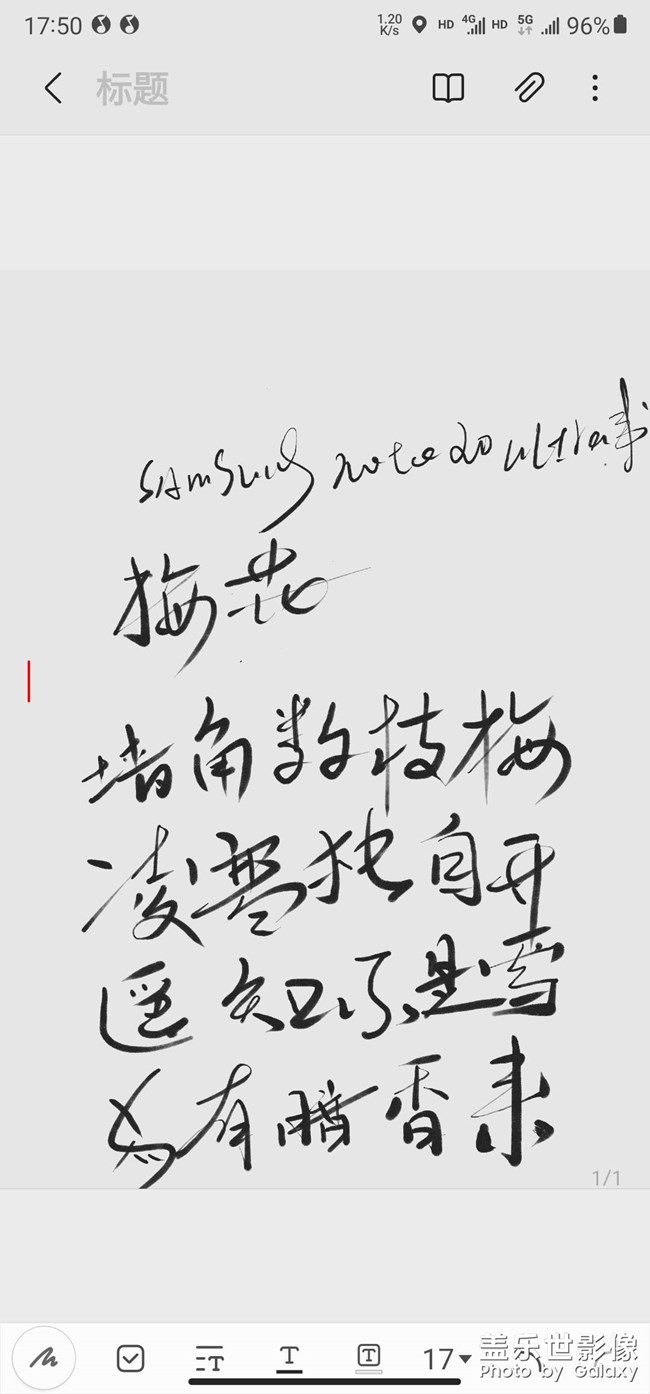 17:50 1.20 K/s HD 4G HD 5G 96%
标题
SAMSUNG note20 ultra书
梅花
墙角数枝梅
凌雪独自开
遥知不是雪
为有暗香来
1/1
17
盖乐世影像
Photo by Galaxy